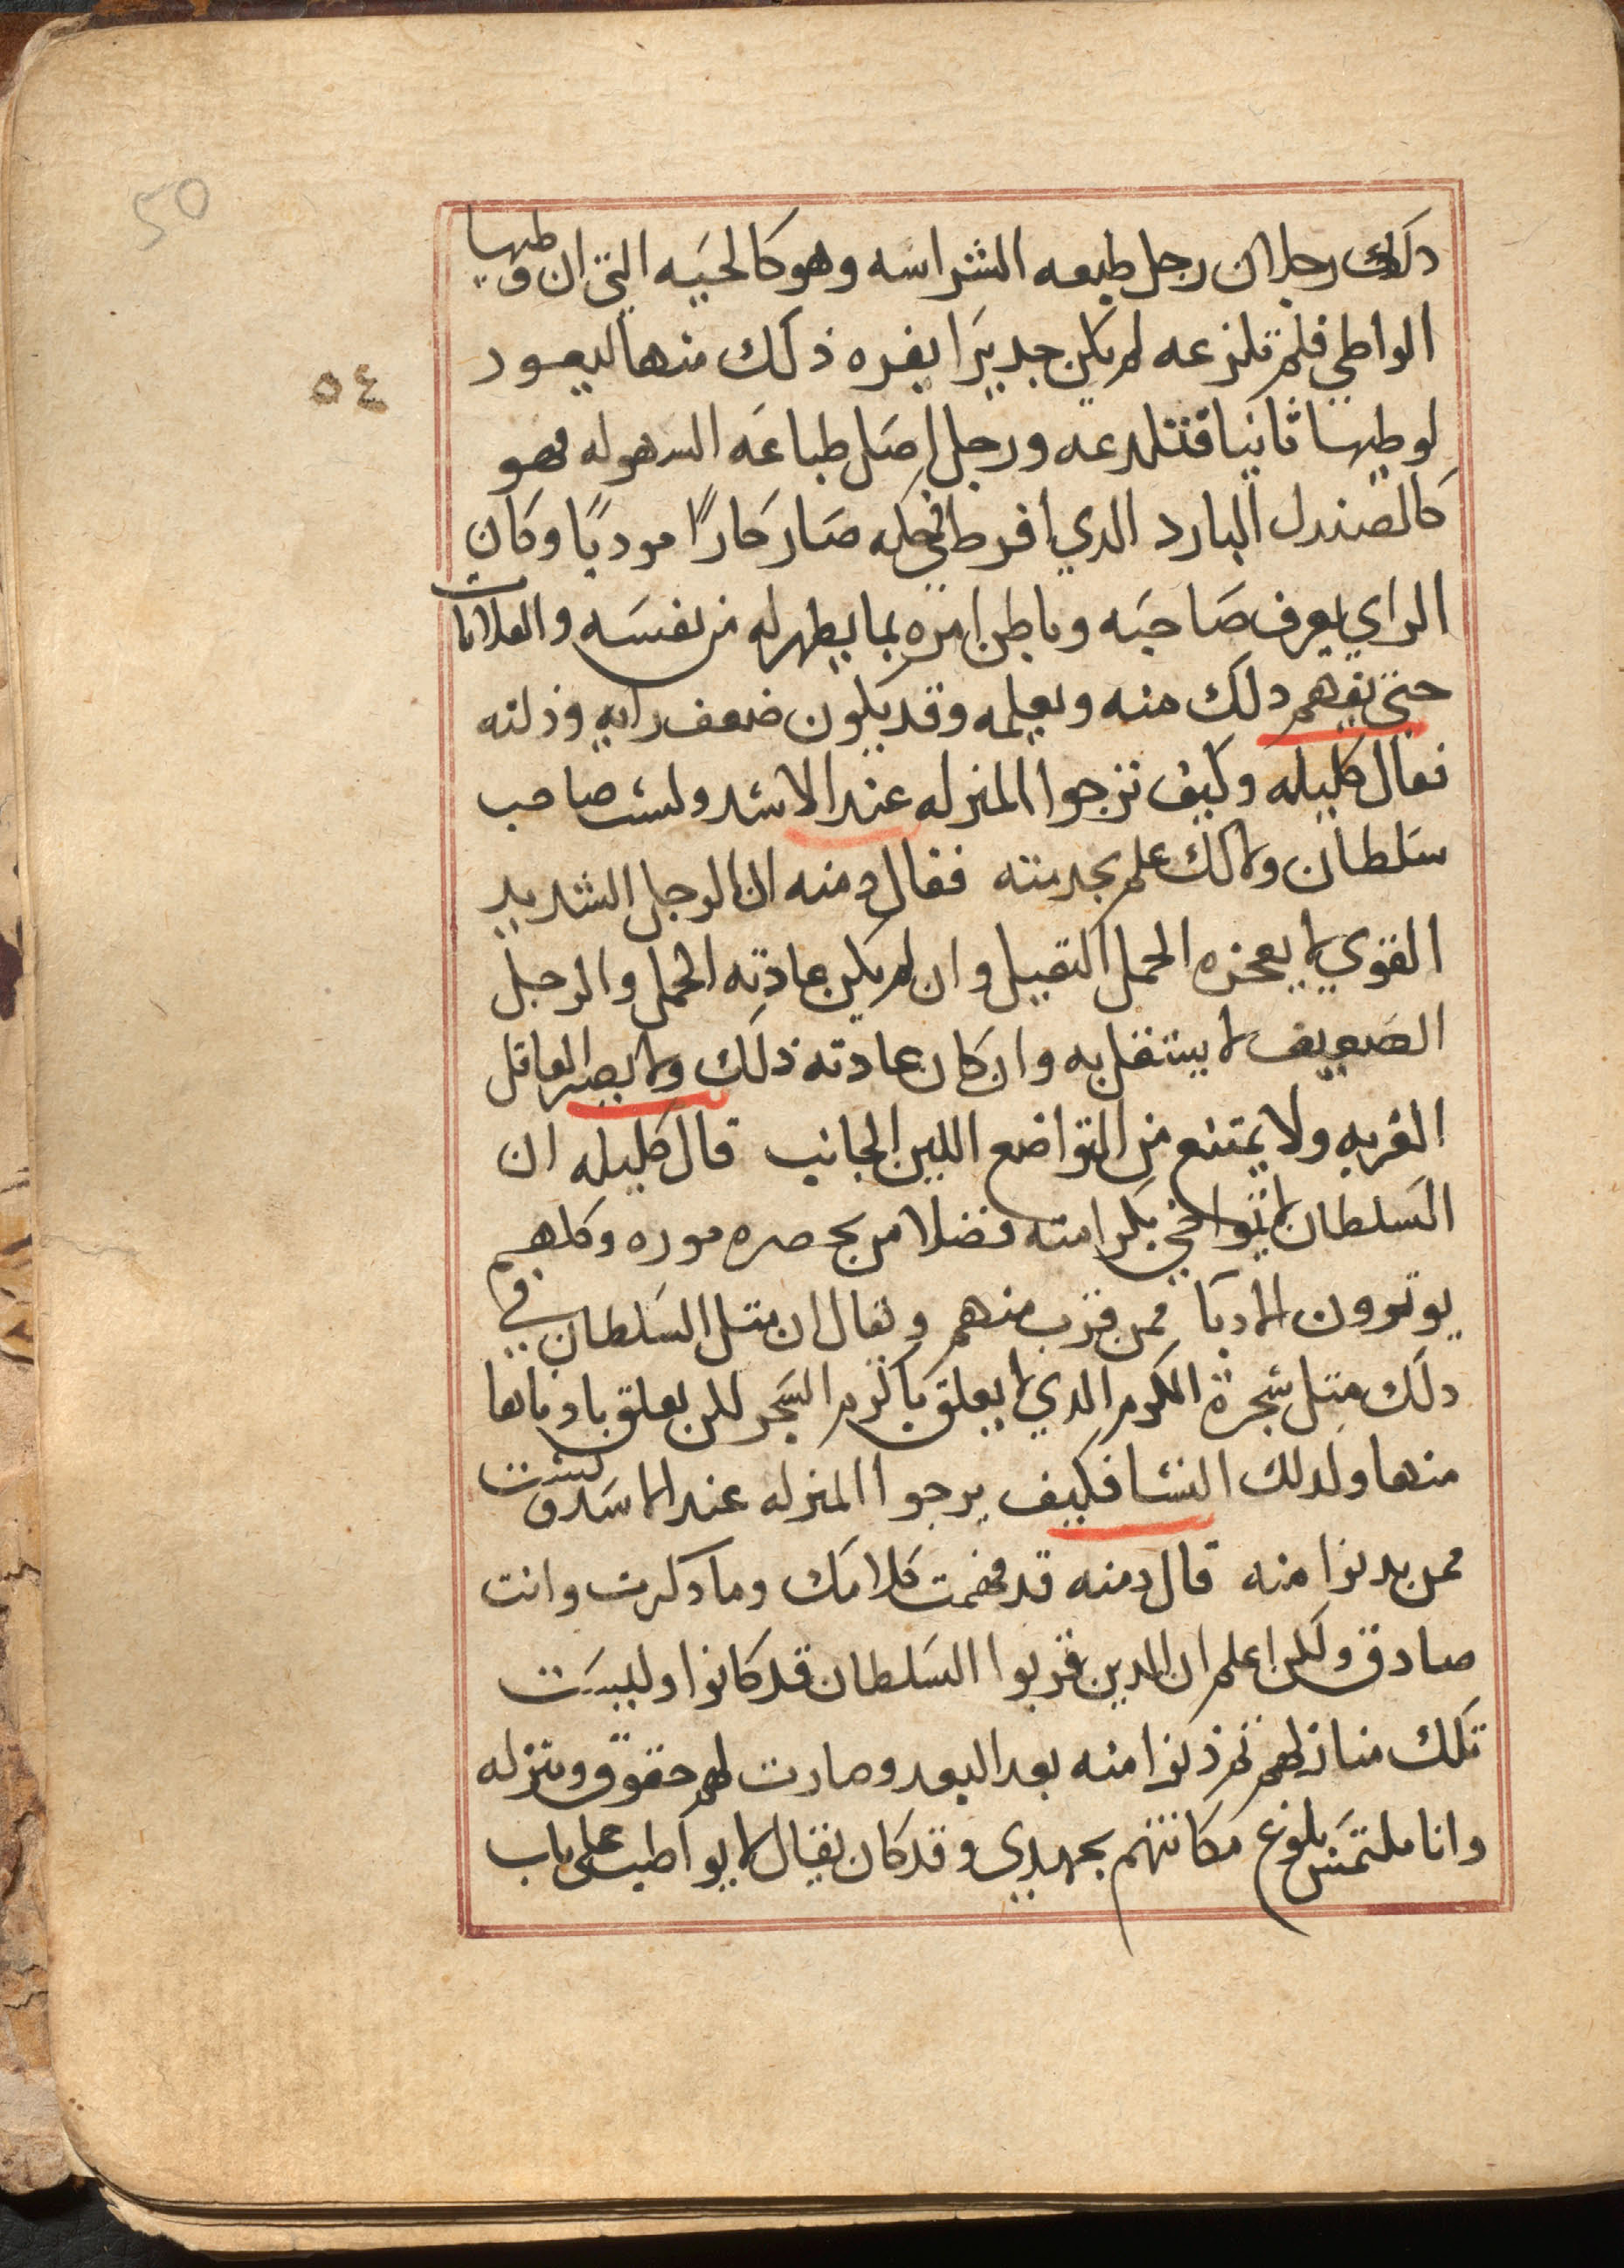 50
٥٤
دلك رجلان رجل طبعه الشراسه وهو كالحيه التي ان وطيها
الواطي فلم تلزعه لم يكن جديرا يغره ذلك منها ليعود
لوطيها ثانيا فتلدعه ورجل اصل طباعه السهوله فهو
كالصندل البارد الدي افرط في حكه صار حارًا موديًا وكان
الراي يعرف صاحبه وباطن امره بما يظهر له من نفسه والعلامات
حتى يفهم دلك منه ويعلمه وقد يكون ضعف رايه وذلته
فقال كليله وكيف نرجوا المنزله عند الاسد ولست صاحب
سلطان ولا لك علم بخدمته فقال دمنه ان الرجل الشديد
القوي لا يعجزه الحمل التقيل وان لم يكن عادته الحمل والرجل
الضعيف لا يستقل به وان كان عادته ذلك ولا يضر العاقل
الغربه ولا يمتنع من التواضع اللين الجانب قال كليله ان
السلطان لا يتواخي بكرامته فضلا من بحصره موره وكلهم
يوتوون الادبا ممن قرب منهم ويقال ان متل السلطان في
دلك متل شجرة الكرم الدي لا يعلق باكرم الشجر لكن يعلق بادناها
منها ولدلك النسا فكيف يرجوا المنزله عند الاسد ولست
ممن يدنوا منه قال دمنه قد فهمت كلامك وما دكرت وانت
صادق ولكن اعلم ان الدين قربوا السلطان قد كانوا وليست
تلك منازلهم ثم ذنوا منه بعد البعد وصارت لهم حقوق ومنزله
وانا ملتمس بلوغ مكانتهم بجهدي وقد كان يقال لا يواطب على باب